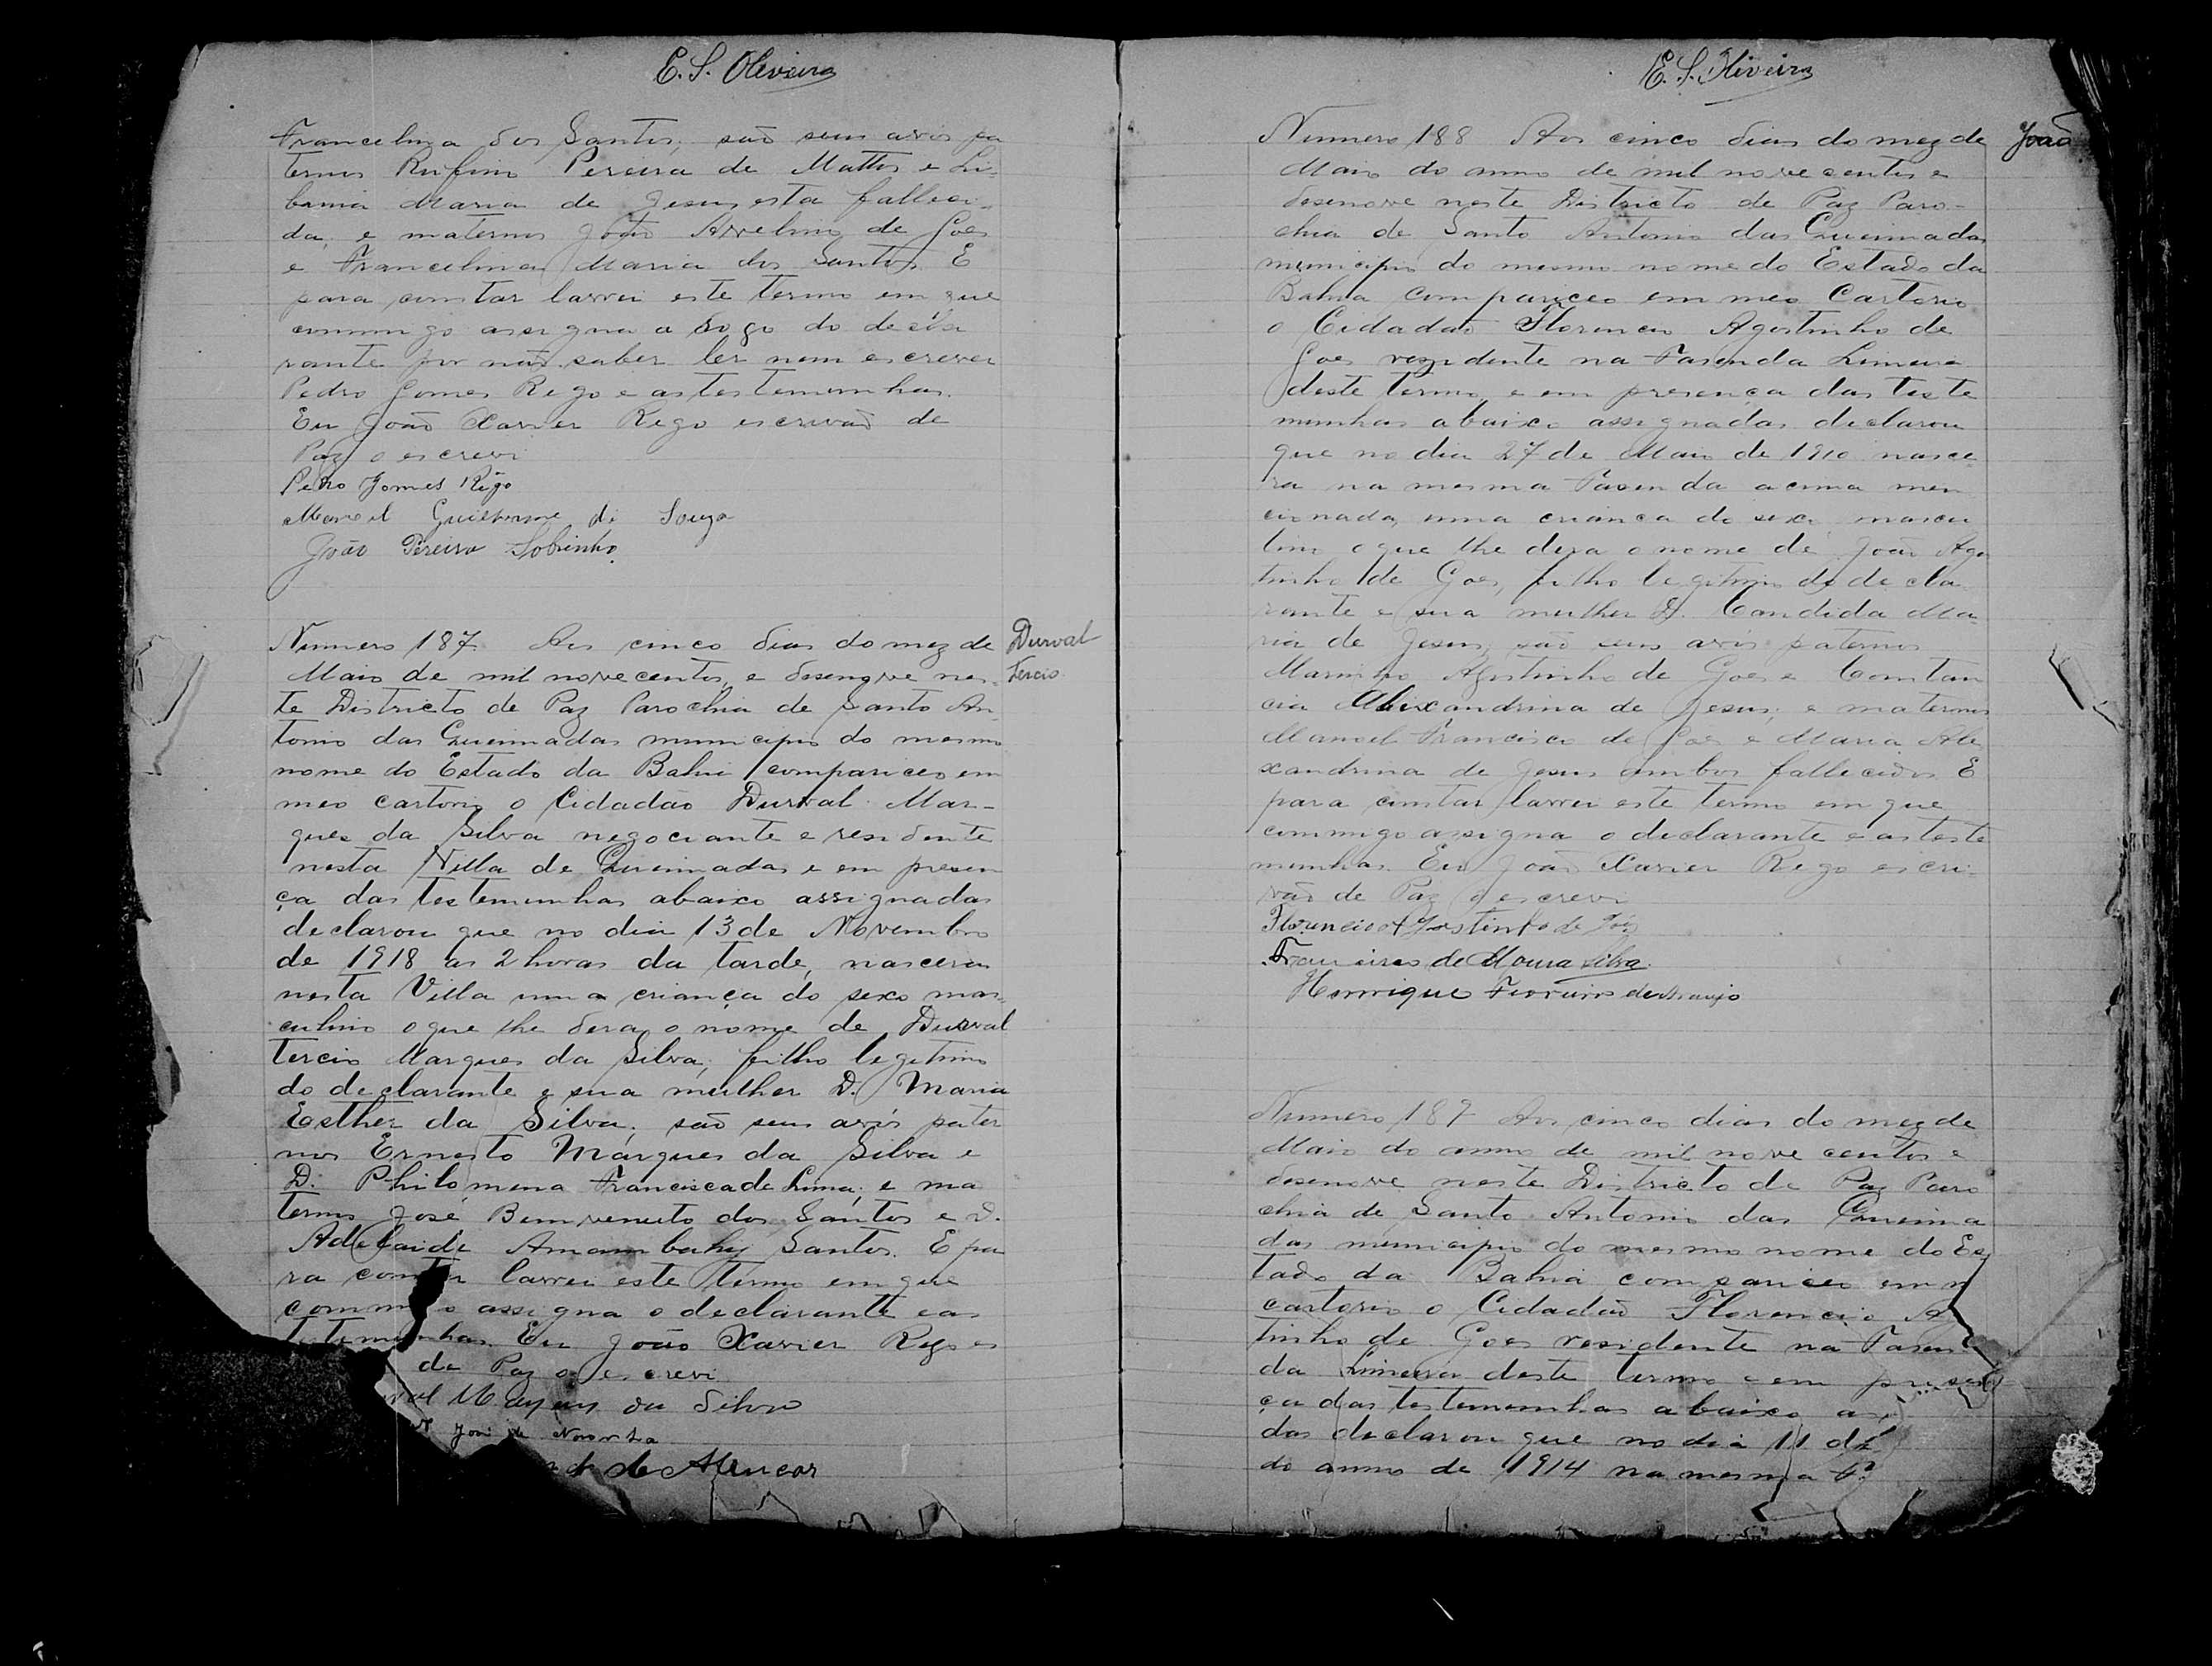 E. S. Oliveira
Francelina dos Santos; são seus avós pa
ternos Rufino Pereira de Mattos e Li-
bania Maria de Jesus esta falleci-
da, e maternos João Avelino de Goes
e Francelina Maria dos Santos. E
para constar lavrei este termo em que
commigo assigna a Rogo do decla
rante por não saber ler nem escrever
Pedro Gomes Rego e as testemunhas.
Eu João Xavier Rego escrivão de
Paz o escrevi
Pedro Gomes Rêgo
Manoel Guilherme di Souza
João Pereira Sobrinho
Numero 187 Aos cinco dias do mez de
Maio de mil nove centos e desenove nes-
te Districto de Paz Parochia de Santo An-
tonio das Queimadas municipio do mesmo
nome do Estado da Bahia compariceo em
meo cartorio o Cidadão Durval Mar-
ques da Silva negociante e residente
nesta Villa de Queimadas e em presen
ça das testemunhas abaixo assignadas
declarou que no dia 13 de Novembro
de 1918 as 2 horas da tarde, nascera
nesta Villa uma criança do sexo mas-
culino o que lhe dera o nome de Durval
Tercio Marques da Silva, filho legitimo
do declarante e sua mulher D. Maria
Esther da Silva; são seus avós pater
nos Ernesto Marques da Silva e
D. Philomena Francisca de Lima; e ma
ternos José Bemvenuto dos Santos e D.
Adelaide Amambahy Santos. E pa
ra constar lavrei este termo em que
commigo assigna o declarante e as
testemunhas. Eu João Xavier Rego es
de Paz o escrevi
val Marques da Silva
José de Noronha
de Alencar
Durval
Tercio
E. S. Oliveira
Numero 188 Aos cinco dias do mez de
Maio do anno de mil nove centos e
desenove neste Districto de Paz Paro-
chia de Santo Antonio das Queimadas
municipio do mesmo nome do Estado da
Bahia compariceo em meo Cartorio
o Cidadão Florencio Agostinho de
Goes rezidente na Fasenda Limeira
deste termo, e em presença das teste
munhas abaixo assignadas declarou
que no dia 27 de Maio de 1910 nasce-
ra na mesma Fasenda acima men
cionada, uma criança do sexo mascu
lino o que lhe dera o nome de João Agos
tinho de Goes, filho legitimo do decla
rante e sua mulher D. Candida Ma
ria de Jesus; são seus avós paternos
Marinho Agostinho de Goes e Constan
cia Alixandrina de Jesus; e maternos
Manoel Francisco de Goes e Maria Ale
xandrina de Jesus ambos fallecidos. E
para constar lavrei este termo em que
commigo assigna o declarante e as teste
munhas. Eu João Xavier Rego escri-
vão de Paz o escrevi
Florencio Agostinho de Góis
Francisco de Moura Silva
Henrique Ferreira de Araujo
João
Numero 189 Aos cinco dias do mez de
Maio do anno de mil nove centos e
desenove neste Districto de Paz Paro
chia de Santo Antonio das Queima
das municipio do mesmo nome do Es
tado da Bahia compariceo em m
cartorio o Cidadão Florencio A
tinho de Goes residente na Fasen
da Limeira deste termo e em presen
ça das testemunhas abaixo as
das declarou que no dia 11 de
do anno de 1914 na mesma F